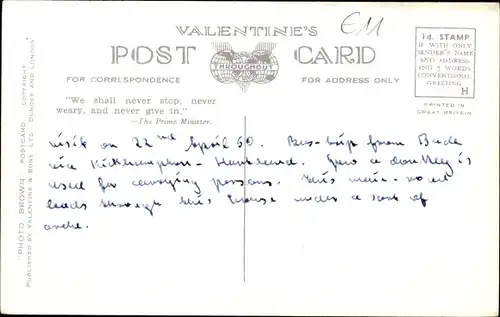 VALENTINE'S
EM
POST CARD
THROUGHOUT
FOR CORRESPONDENCE
FOR ADDRESS ONLY
1d. STAMP
IF WITH ONLY
SENDER'S NAME
AND ADDRESS
AND 5 WORDS
CONVENTIONAL
GREETING
H
PRINTED IN
GREAT BRITAIN
"We shall never stop, never
weary, and never give in."
—The Prime Minister.
"PHOTO BROWN" POSTCARD. COPYRIGHT.
PUBLISHED BY VALENTINE & SONS LTD. DUNDEE AND LONDON
visit on 22nd April 60. Bus-trip from Bude
via Kilkhampton - Hartland. a donkey is
used for carrying persons. This main-road
leads through this house under a sort of
arche.